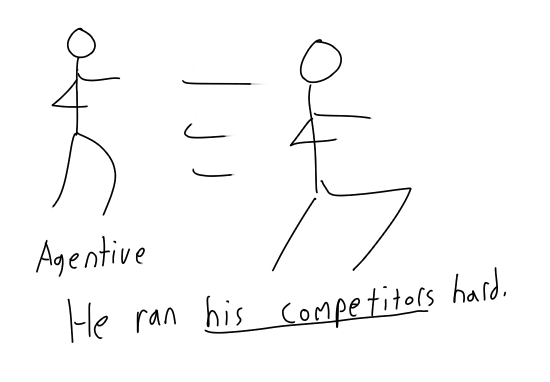 Agentive
He ran his competitors hard.